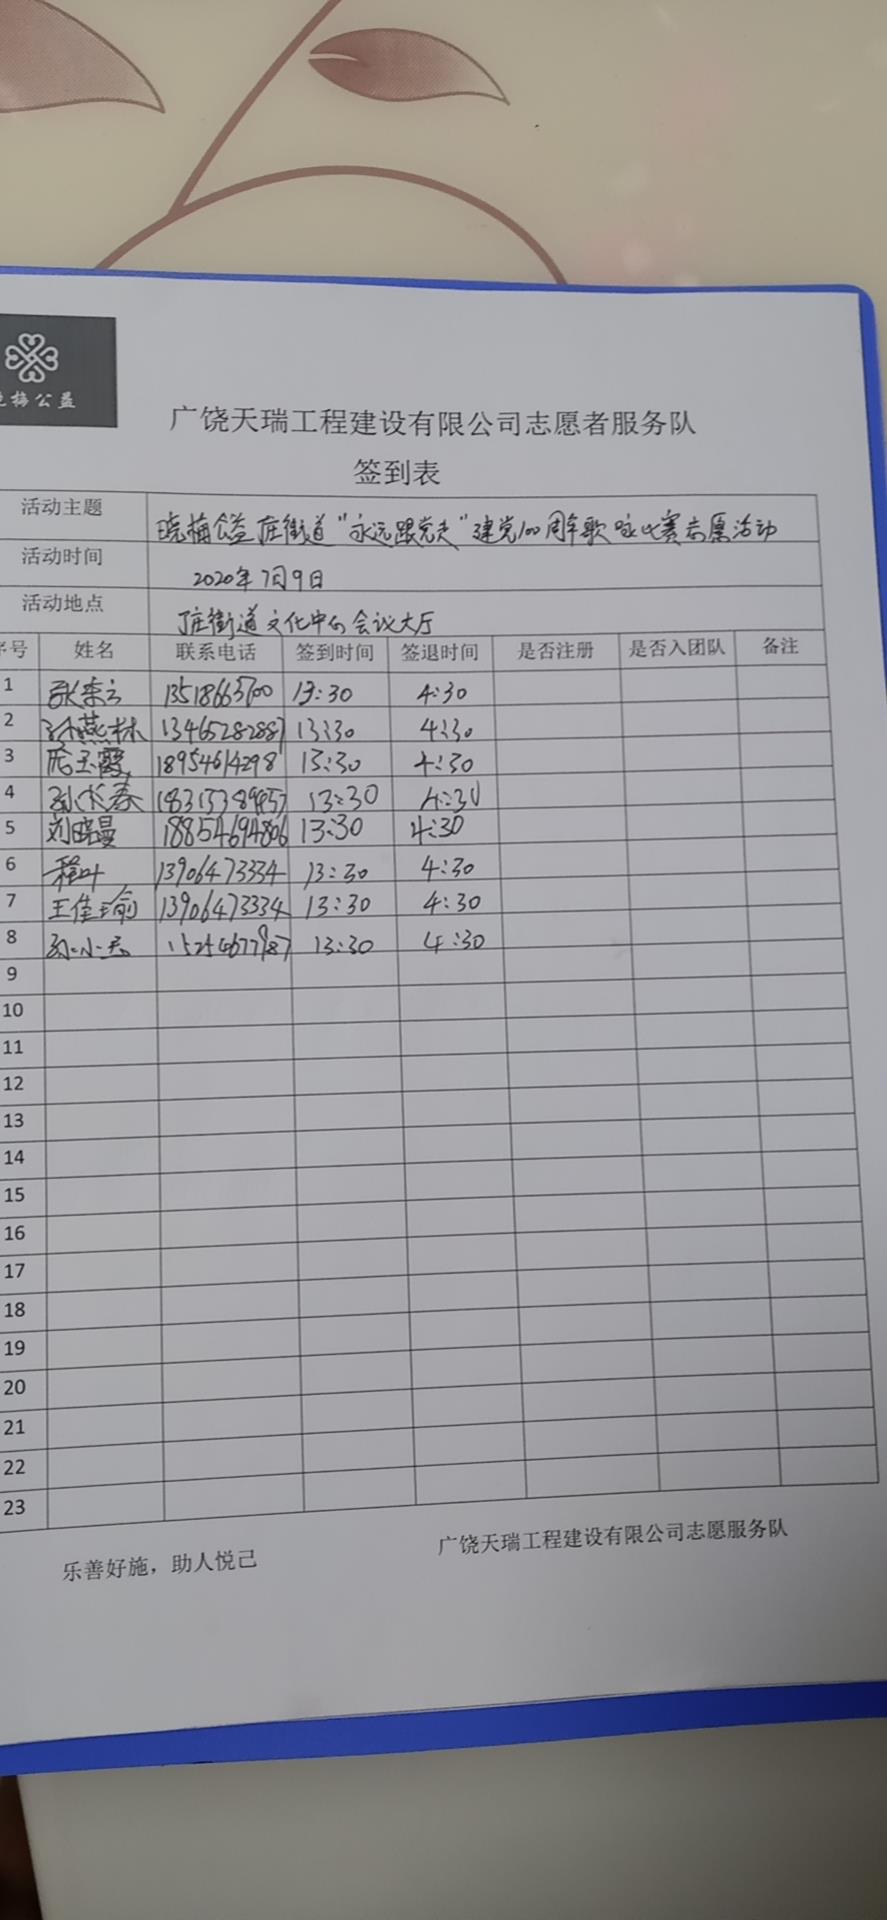 梅公益
广饶天瑞工程建设有限公司志愿者服务队
签到表
活动主题 晓梅公益 庄街道“永远跟党走”建党100周年歌咏比赛志愿活动
活动时间 2020年7月9日
活动地点 丁庄街道文化中心会议大厅
序号 姓名 联系电话 签到时间 签退时间 是否注册 是否入团队 备注
1 13518665700 13:30 4:30
2 孙燕林 13465282887 13:30 4:30
3 玉霞 18954614298 13:30 4:30
4 孙 春 13:30 4:30
5 刘晓曼 18854694806 13:30 4:30
6 程叶 13906473334 13:30 4:30
7 王佳瑜 13906473334 13:30 4:30
8 孙小 15254677987 13:30 4:30
9
10
11
12
13
14
15
16
17
18
19
20
21
22
23
乐善好施，助人悦己
广饶天瑞工程建设有限公司志愿服务队